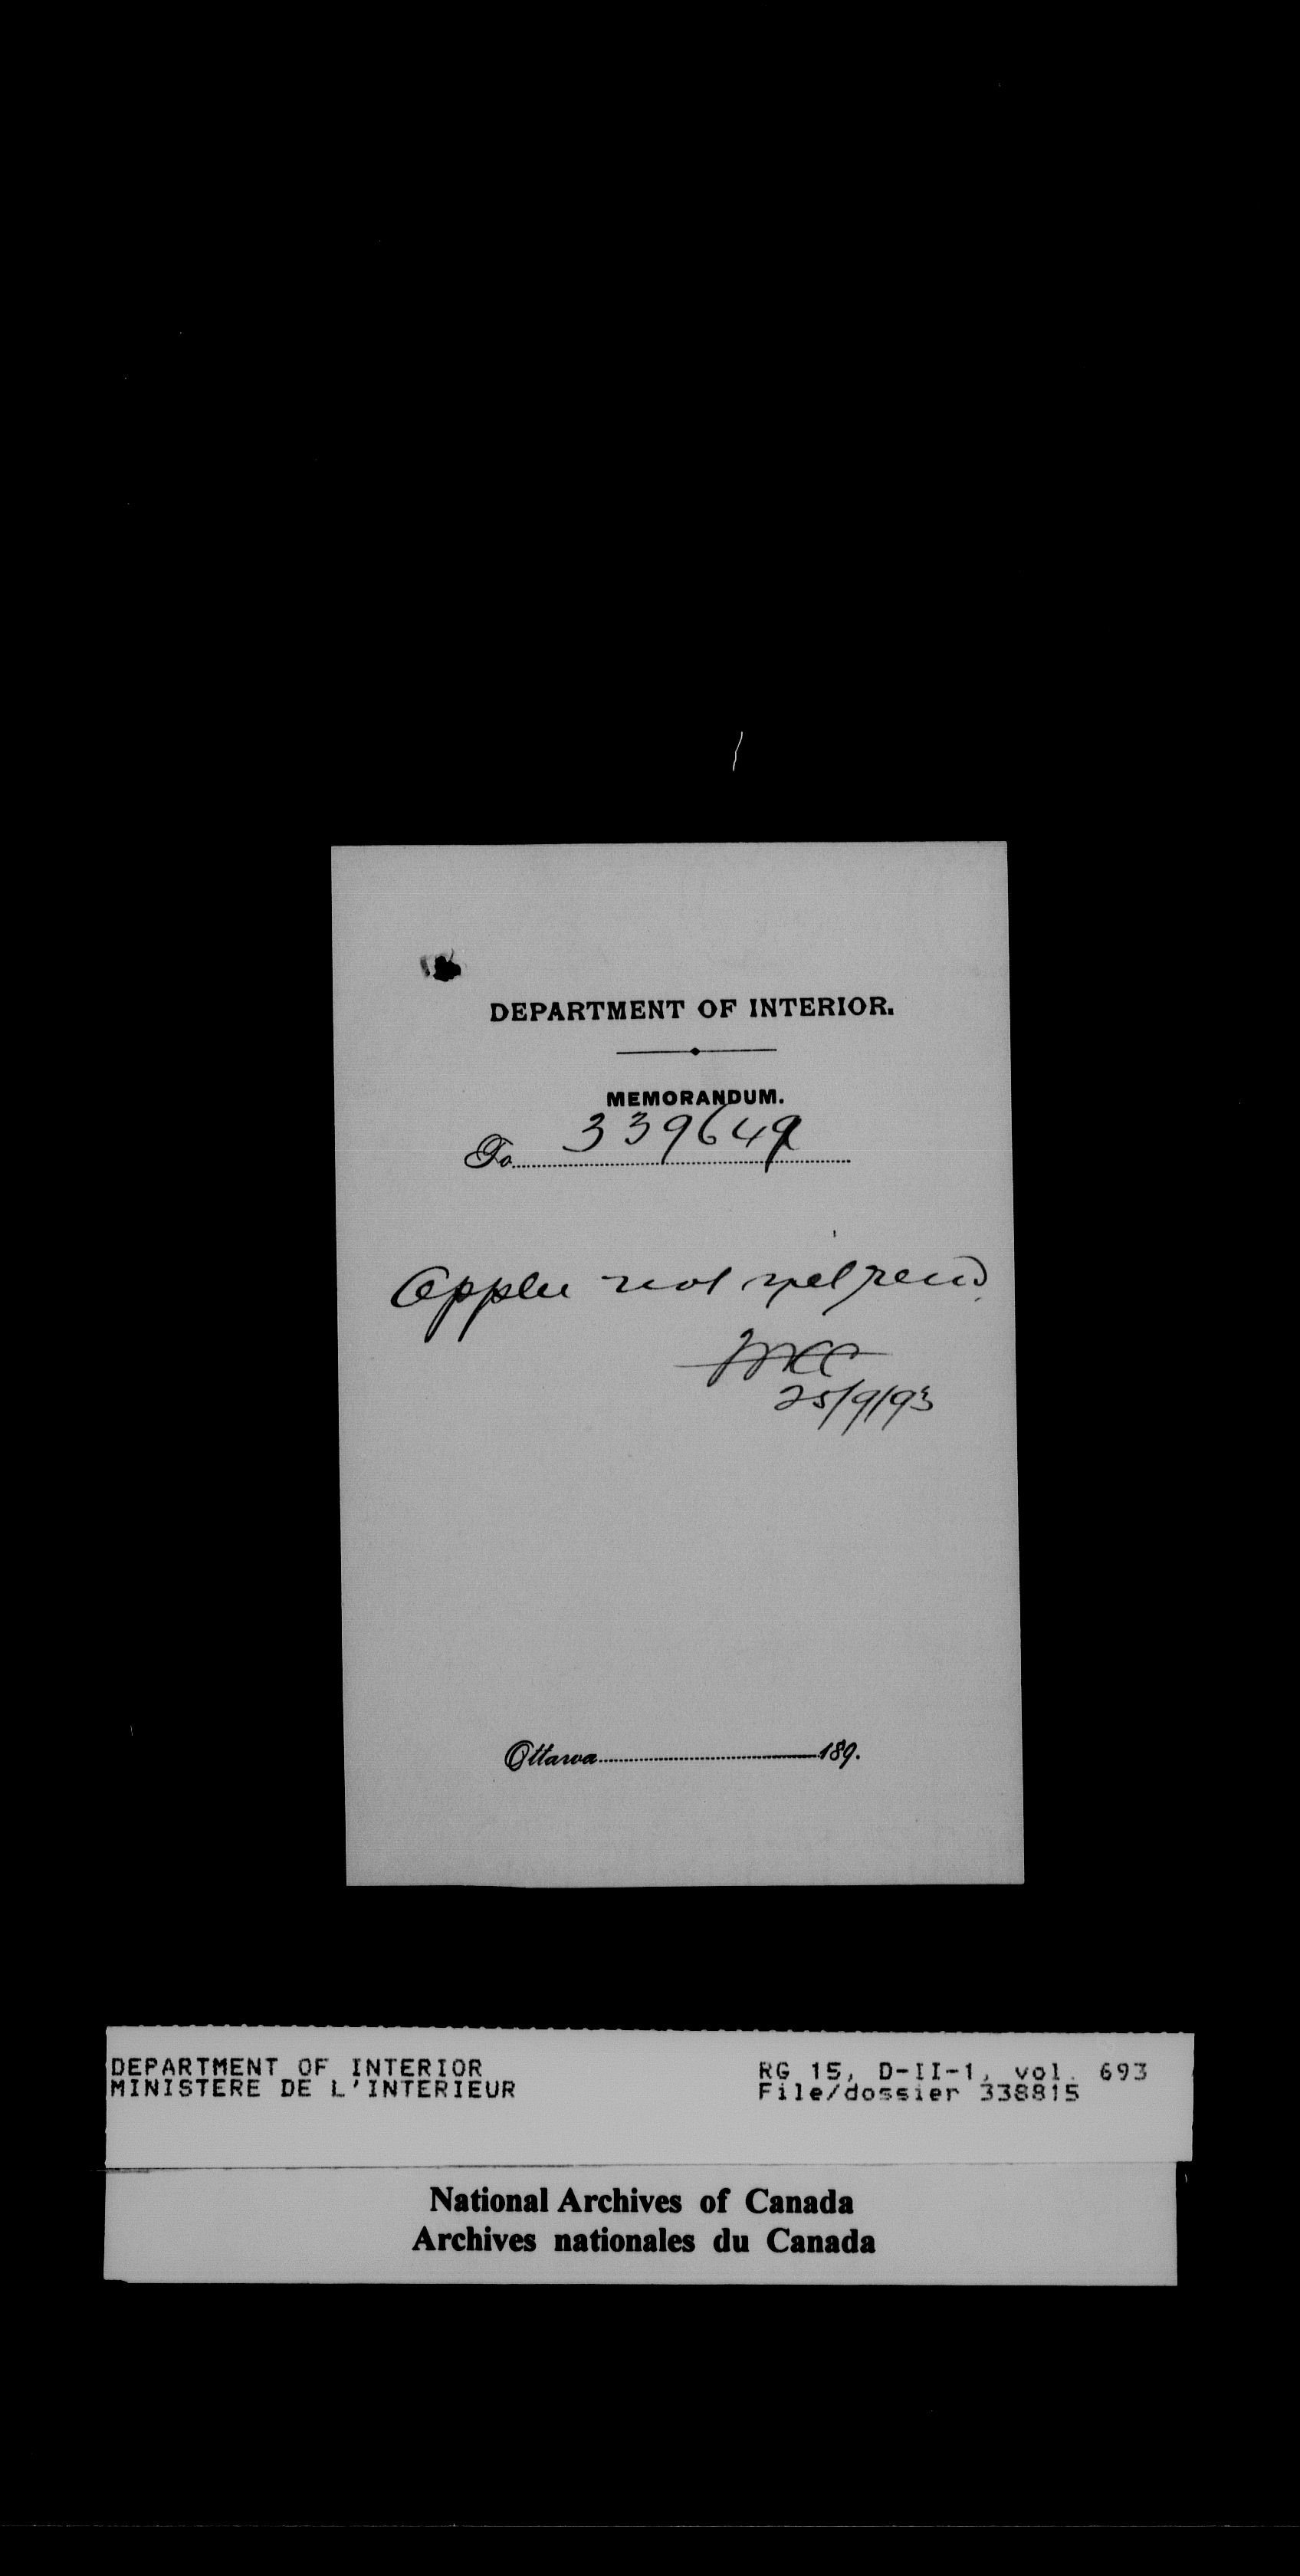 DEPARTMENT OF INTERIOR.
MEMORANDUM.
To 339649
not yet recd
25/9/93
Ottawa 189.
DEPARTMENT OF INTERIOR
MINISTERE DE L'INTERIEUR
RG 15, D-II-1, vol. 693
File/dossier 338815
National Archives of Canada
Archives nationales du Canada